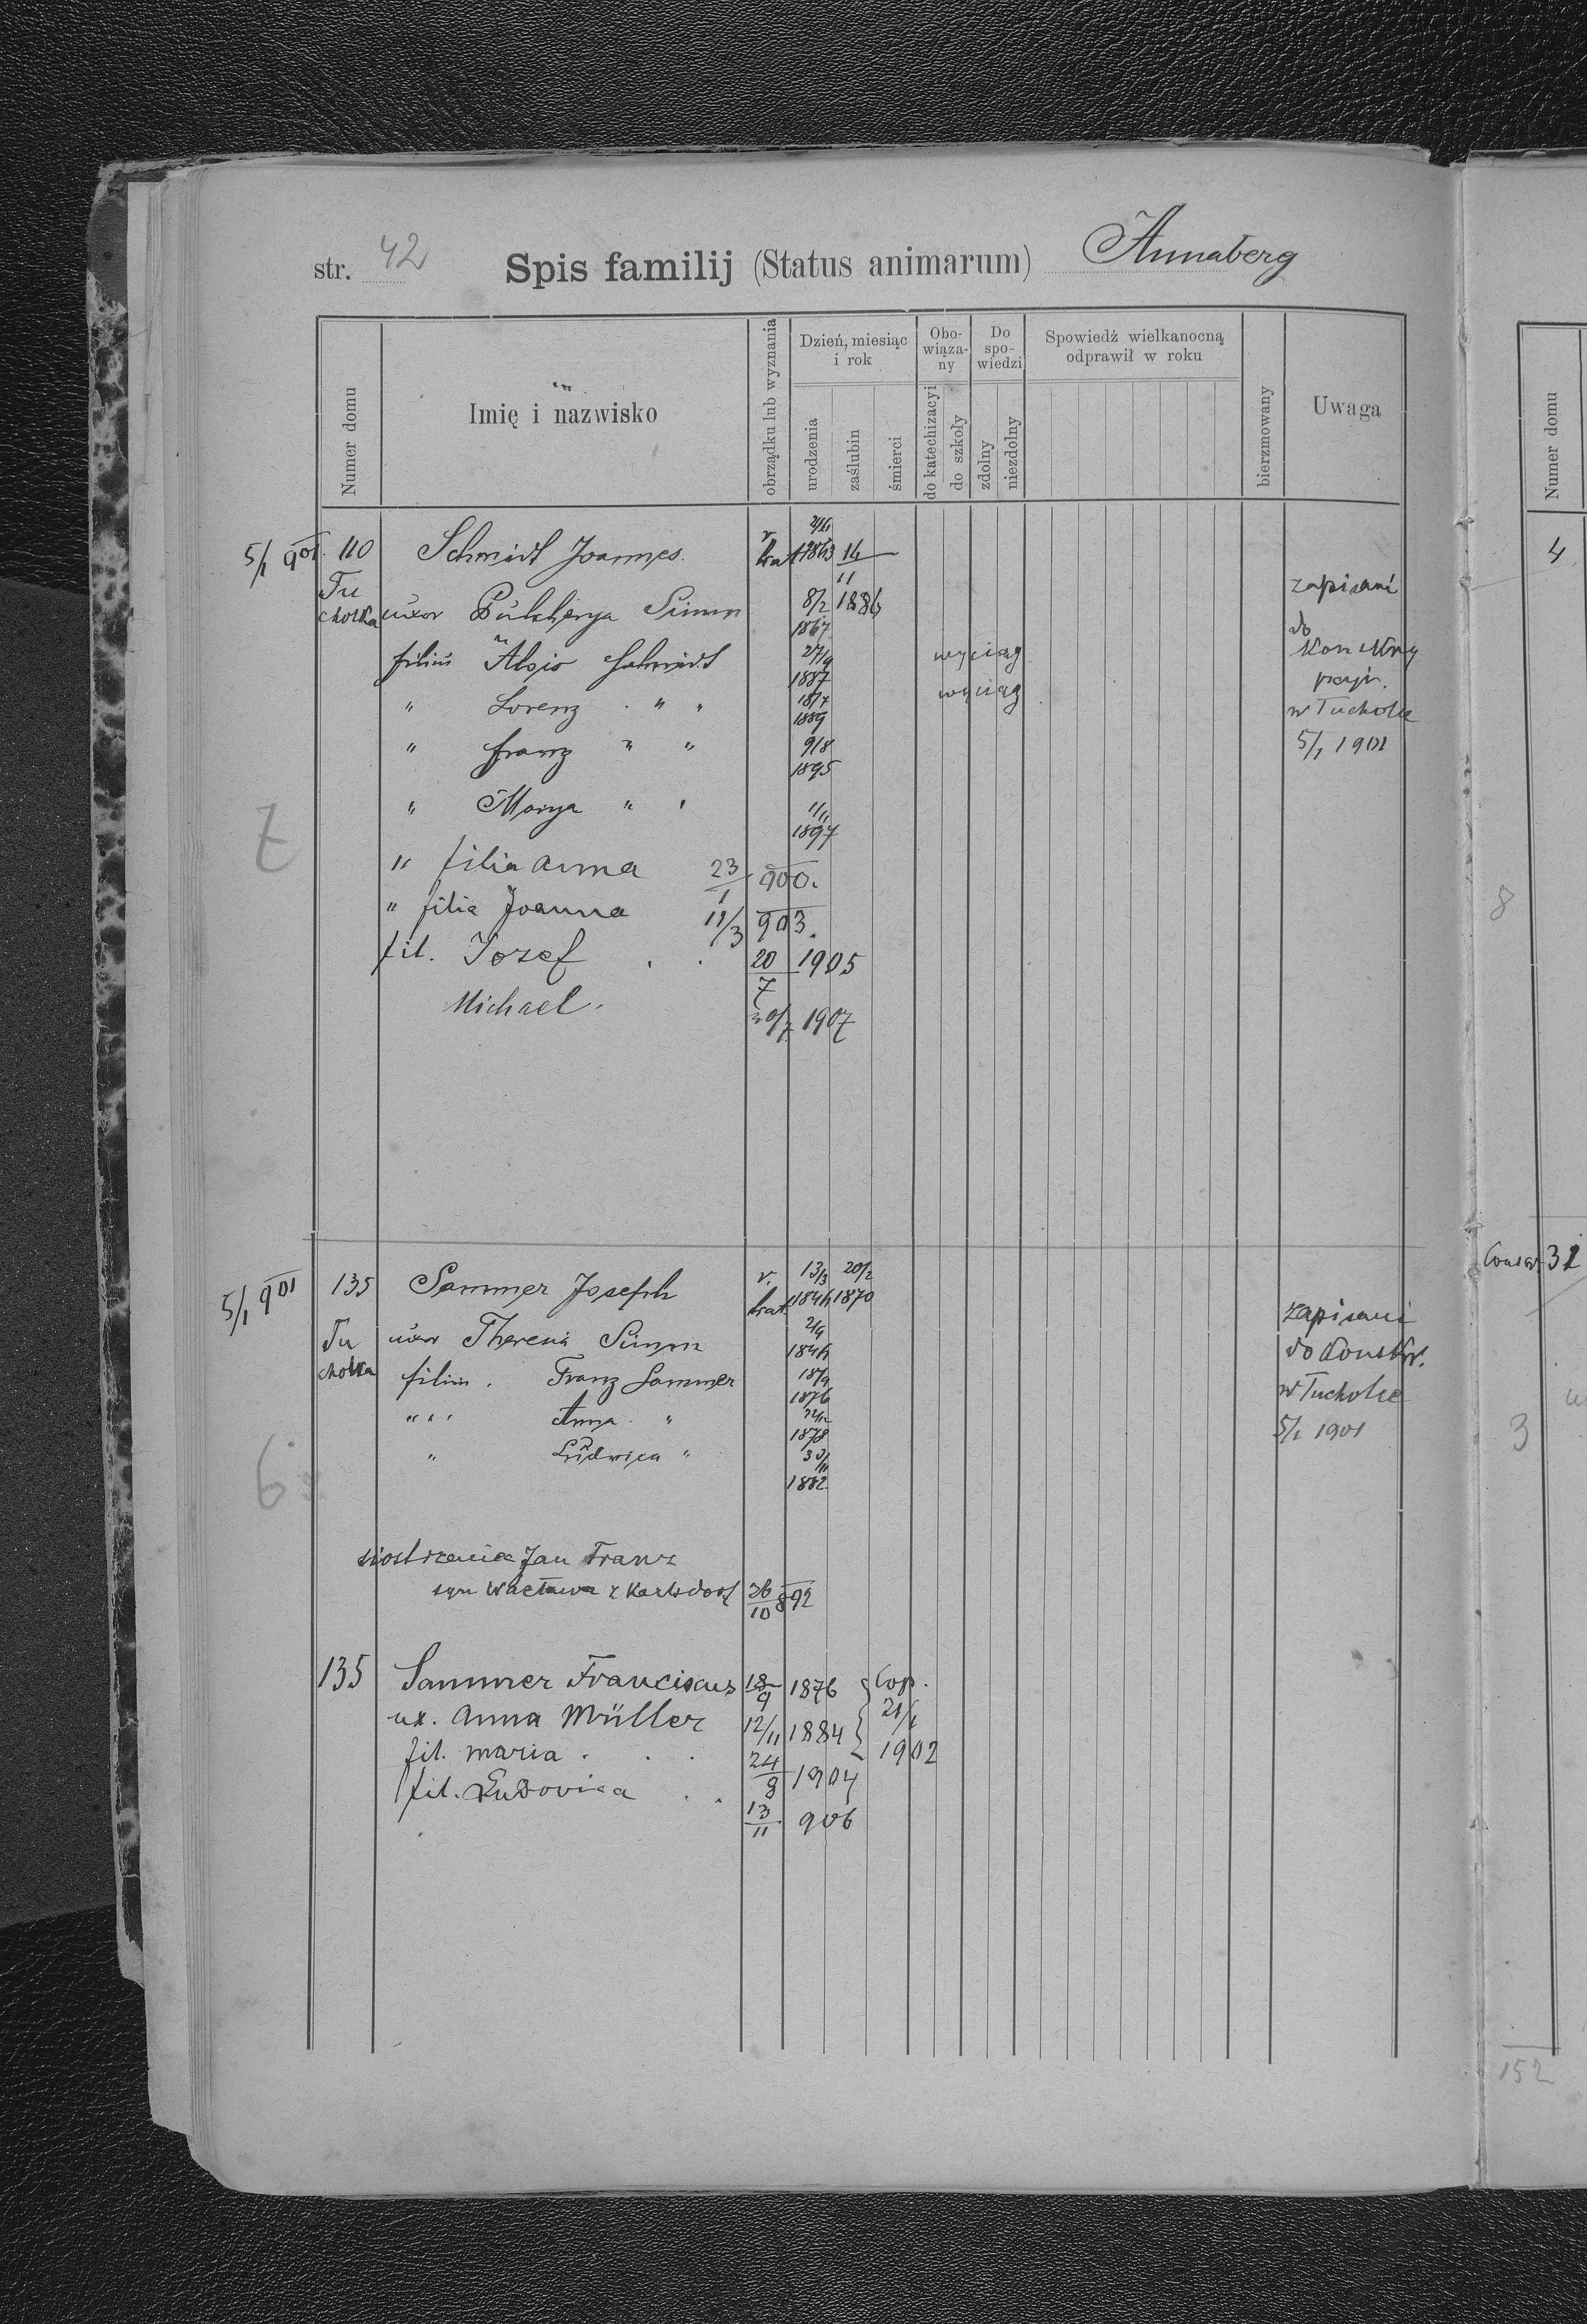 str. 42 Spis familij (Status animarum) Annaberg
Numer domu
Imię i nazwisko
obrządku lub wyznania
Dzień, miesiąc i rok
urodzenia
zaślubin
śmierci
Obo-wiąza-ny
do katechizacyi
do szkoły
Do spo-wiedzi
zdolny
niezdolny
Spowiedź wielkanocną odprawił w roku
bierzmowany
Uwaga
Numer domu
5/1 901. 110 Schmidt Joannes. r. kat 1863 14/11 1886
Tucholka uxor Pulcherya Simon 8/2 1867
filius Alois Schmidt 27/9 1887 wyciąg
" Lorenz " " 18/7 1889 wyciąg
" Franz " " 9/8 1895
" Marya " " 1897
" filia Anna 23/1 900.
" filia Joanna 11/3 903.
fil. Jozef . . 20/7 1905
Michael. 30/7 1907
zapisani
do
w Tucholce
5/1 1901
7
4
8
5/1 901 135 Sammer Joseph r. kat 13/3 1844 20/2 1870
Tucholka uxor Theresia Simon 2/9 1844
filius . Franz Sammer 18/9 1876
" " " Anna " 1878
" Ludwica " 1882
zapisani
do Konskr.
w Tucholce
5/1 1901
6
31
3
siostrzenica Jan Franz
syn Wacława z Karlsdorf 26/10 892
135 Sammer Franciscus 18/9 1876 } Cop.
ux. Anna Müller 12/11 1884 } 21/1 1902
fil. Maria . . . 24/8 1904
fil. Ludovica . . 13/11 906
152